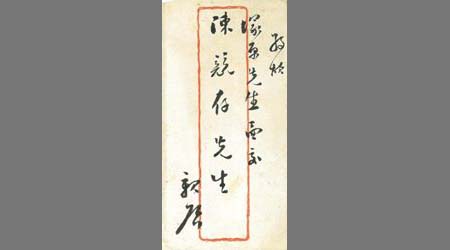 煩
塚原先生面交
陳競存先生
親啟